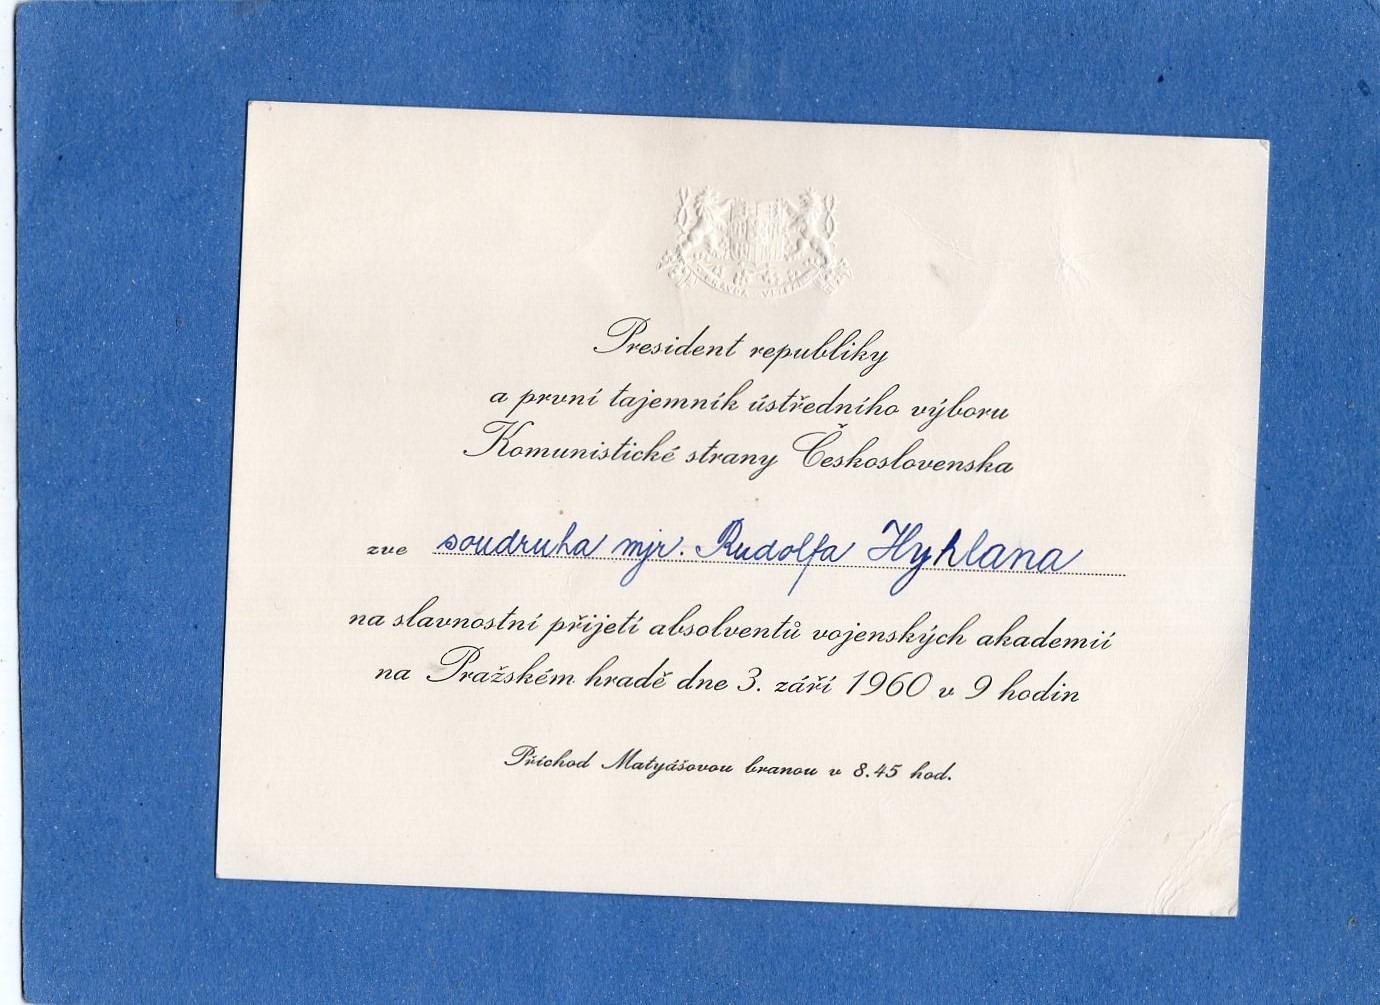 PRAVDA VÍTĚZÍ
President republiky
a první tajemník ústředního výboru
Komunistické strany Československa
zve soudruha mjr. Rudolfa Hyhlana
na slavnostní přijetí absolventů vojenských akademií
na Pražském hradě dne 3. září 1960 v 9 hodin
Příchod Matyášovou branou v 8.45 hod.